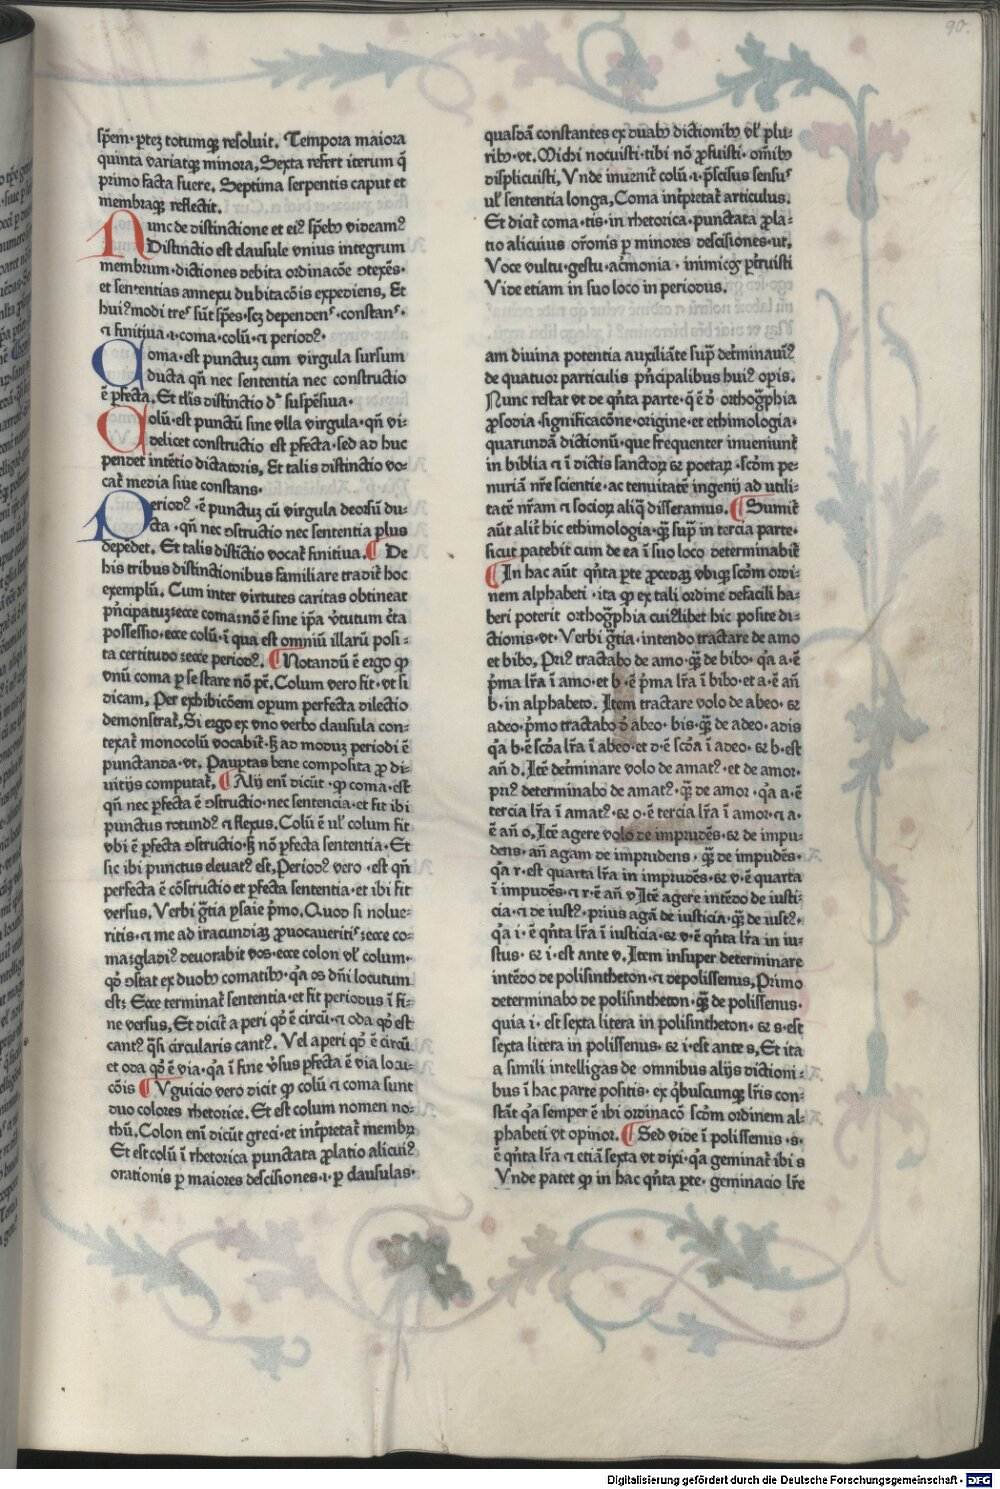 90.
sp̄em·ꝑteʒ totumqꝫ resoluit. Tempora maiora
quinta variatqꝫ minora, Sexta refert iterum q̄
primo facta fuere, Septima serpentis caput et
membraqꝫ reflectit.
Nunc de distinctione et eiꝰ sp̄ebꝫ videamꝰ
Distinctio est clausule vnius integrum
membrum·dictiones debita ordinacōe ↄtexēs·
et sentētias annexu dubitacōis expediens, Et
huiꝰmodi tres sūt sp̄es·scꝫ dependens·constans·
⁊ finitiua·ı·coma·colū·⁊ periodꝰ·
Coma·est punctuꝫ cum virgula sursum
ducta qn̄ nec sententia nec constructio
ē ꝑfecta. Et tl̄is distinctio dꝛ suspēsiua·
Colū·est punctū sine vlla virgula·qn̄ vi⸗
delicet constructio est ꝑfecta·sed ad huc
pendet intētio dictatoris, Et talis distinctio vo⸗
cat̄ media siue constans·
Periodꝰ·ē punctuꝫ cū virgula deorsū du⸗
cta·qn̄ nec ↄstructio nec sententia plus
depēdet. Et talis distīctio vocat̄ finitiua. ¶ De
his tribus distinctionibus familiare tradit̄ hoc
exemplū. Cum inter virtutes caritas obtineat
pn̄cipatuꝫ:ecce coma:nō ē sine ip̄a v̓tutum c̓ta
possessio·ecce colū·ī qua est omniū illarū posi⸗
ta certitudo :ecce periodꝰ. ¶ Notandū ē ergo ꝙ
vnū coma ꝑ se stare nō pt̄. Colum vero fit·vt si
dicam, Per exhibicōem opum perfecta dilectio
demonstrat̄, Si ergo ex vno verbo clausula con⸗
texat̄ monocolū vocabit̄·sꝫ ad moduꝫ periodi ē
punctanda·vt. Paup̄tas bene composita ꝓ di⸗
uitijs computat̄. ¶ Alij eni̅ dicūt·ꝙ coma·est
qn̄ nec ꝑfecta ē ↄstructio·nec sentencia·et fit ibi
punctus rotundꝰ ⁊ flexus. Colū ē ul̓ colum fit
vbi ē ꝑfecta ↄstructio·sꝫ nō ꝑfecta sententia·Et
sic ibi punctus eleuatꝰ est, Periodꝰ vero·est qn̄
perfecta ē cōstructio et ꝑfecta sententia·et ibi fit
versus. Verbi gr̄tia ysaie p̄mo. Quod si nolue⸗
ritis·⁊ me ad iracundiaꝫ ꝓuocaueritis :ecce co⸗
ma:gladiꝰ deuorabit vos·ecce colon ul̓ colum·
qd̓ ↄstat ex duobꝫ comatibꝫ·qͣ os dn̄i locutum
est: Ecce terminat̄ sententia·et fit periodus ī fi⸗
ne versus, Et dicit̄ a peri qd̓ ē circū·⁊ oda qd̓ est
cantꝰ q̄si circularis cantꝰ. Vel a peri qd̓ ē circū
et oda qd̓ ē via·qͣ ī fine v̓sus ꝑfecta ē via locu⸗
cōis ¶ Vguicio vero dicit ꝙ colū ⁊ coma sunt
duo colores rhetorice. Et est colum nomen no⸗
thū. Colon eni̅ dicūt greci·et int̓pretat̄ membꝝ
Et est colū ī rhetorica punctata ꝓlatio alicuiꝰ
orationis ꝑ maiores descisiones·ı·ꝑ clausulas·
quasdā constantes ex duabꝫ dictionibꝫ ul̓ plu⸗
ribꝫ·vt. Michi nocuisti·tibi nō ꝓfuisti·om̄ibꝫ
displicuisti, Vnde inuenit̄ colū·ı·p̄scisus sensus
ul̓ sententia longa, Coma int̓pretat̄ articulus.
Et dicit̄ coma·tis·in rhetorica·punctata ꝓla⸗
tio alicuius or̄onis ꝑ minores descisiones·ut.
Voce vultu·gestu·ac̓monia·inimicos ꝑt̓ruisti
Vide etiam in suo loco in periodus.
am diuina potentia auxiliāte sup̄ det̓minauimꝰ
de quatuor particulis pn̄cipalibus huiꝰ opis.
Nunc restat vt de qn̄ta parte·q̄ ē d̓ orthogͣphia
ꝓsodia·significacōne·origine·et ethimologia·
quarundā dictionū·que frequenter inueniunt̄
in biblia ⁊ ī dictis sanctoꝝ ⁊ poetaꝝ·scd̓m pe⸗
nuriā nr̄e scientie·ac tenuitatē ingenij ad utili⸗
tatē nr̄am ⁊ socioꝝ aliq̄ disseramus. ¶ Sumit̄
aūt alit̓ hic ethimologia·qꝫ sup̄ in tercia parte·
sicut patebit cum de ea ī suo loco determinabit̄
¶ In hac aūt qn̄ta ꝑte ꝓcedaꝫ vbiqꝫ scd̓m ordi⸗
nem alphabeti·ita ꝙ ex tali ordine defacili ha⸗
beri poterit orthogͣphia cuiꝰlibet hic posite di⸗
ctionis·vt·Verbi gr̄tia·intendo tractare de amo
et bibo, Priꝰ tractabo de amo·qꝫ de bibo·qͣ a·ē
p̄ma lr̄a ī amo·et b·ē p̄ma lr̄a ī bibo·et a·ē añ
b·in alphabeto. Item tractare volo de abeo·⁊
adeo·p̄mo tractabo d̓ abeo·bis·qꝫ de adeo·adis
qͣ b·ē scd̓a lr̄a ī abeo·et d·ē scd̓a ī adeo·⁊ b·est
añ d. Itē det̓minare volo de amatꝰ·et de amor·
priꝰ determinabo de amatꝰ·qꝫ de amor·qͣ a·ē
tercia lr̄a ī amatꝰ·⁊ o·ē tercia lr̄a ī amor·⁊ a·
ē añ o, Itē agere volo de imprudēs·⁊ de impu⸗
dens·añ agam de imprudens·qꝫ de impudēs·
qͣ r·est quarta lr̄a in imprudēs·⁊ v·ē quarta
ī impudēs·⁊ r·ē añ v Itē agere intēdo de iusti⸗
cia·⁊ de iustꝰ·prius agā de iusticia·qꝫ de iustꝰ·
qͣ i·ē qn̄ta lr̄a ī iusticia·⁊ v·ē qn̄ta lr̄a in iu⸗
stus·⁊ i·est ante v. Item insuper determinare
intēdo de polisintheton·⁊ depolissenus, Primo
determinabo de polisintheton·qꝫ de polissenus·
quia i·est sexta litera in polisintheton·⁊ s·est
sexta litera in polissenus·⁊ i·est ante s, Et ita
a simili intelligas de omnibus alijs dictioni⸗
bus ī hac parte positis·ex qͥbuscumqꝫ lr̄is con⸗
stāt qͣ semper ē ibi ordinacō scd̓m ordinem al⸗
phabeti vt opinor. ¶ Sed vide ī polissenus·s·
ē qn̄ta lr̄a ⁊ etiā sexta vt dixi·qͣ geminat̄ ibi s
Vnde patet ꝙ in hac qn̄ta ꝑte·geminacio lr̄e
Digitalisierung gefördert durch die Deutsche Forschungsgemeinschaft - DFG